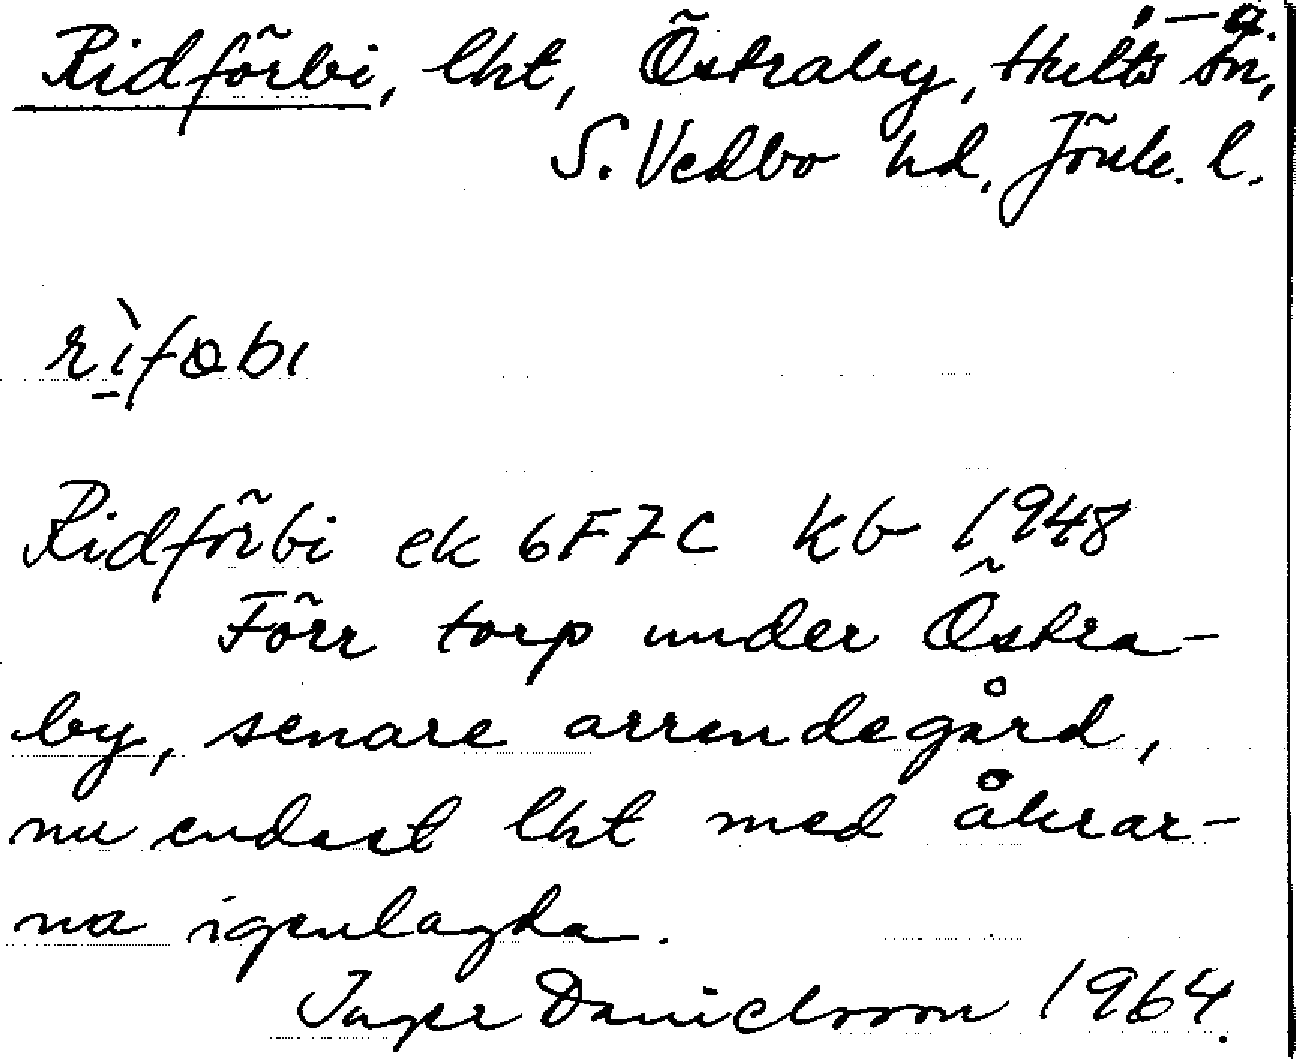 Ridförbi, lht, Östraby, Hults sn,
S. Vedbo hd. Jönk. l.
rìfɵbı
Ridförbi ek 6F7C kb 1948
Förr torp under Östra-
by, senare arrendegård,
nu endast lht med åkrar-
na igenlagda.
Inger Danielsson 1964.